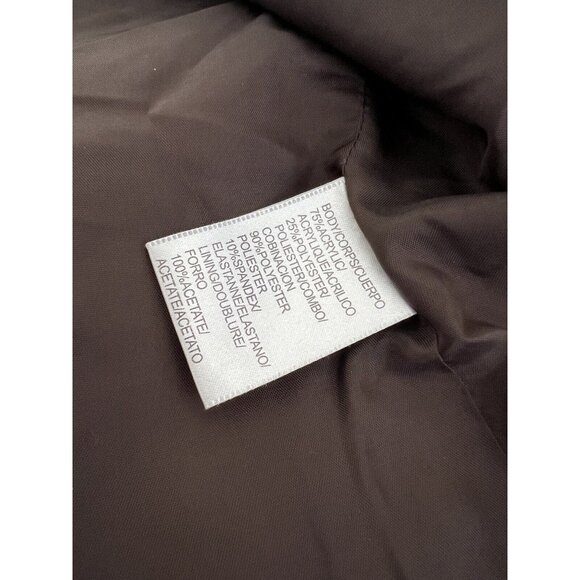 BODY/CORPS/CUERPO
75%ACRYLIC/
ACRYLIQUE/ACRILICO
25%POLYESTER/
POLIESTER/COMBO/
COBINACION
90%POLYESTER
POLIESTER
10%SPANDEX/
ELASTANNE/ELASTANO/
LINING/DOUBLURE/
FORRO
100%ACETATE/
ACETATE/ACETATO